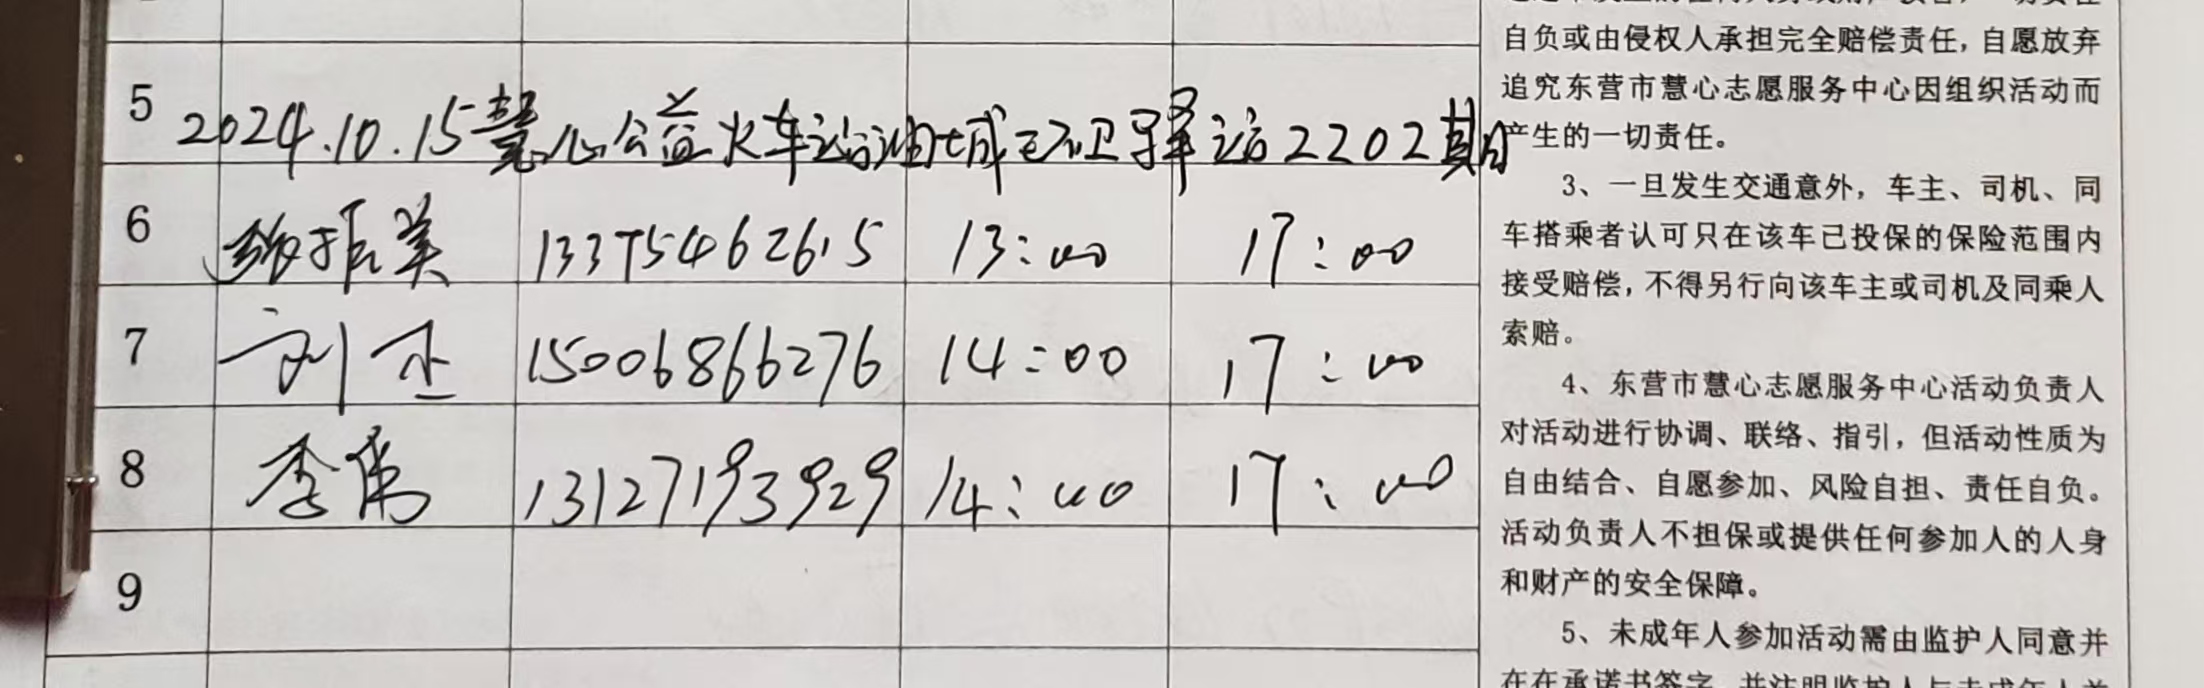 5 2024.10.15慧心公益火车站油城环卫驿站2202期
6 振美 13375462615 13:00 17:00
7 刘杰 15006866276 14:00 17:00
8 李伟 13127193929 14:00 17:00
9
自负或由侵权人承担完全赔偿责任，自愿放弃
追究东营市慧心志愿服务中心因组织活动而
产生的一切责任。
3、一旦发生交通意外，车主、司机、同
车搭乘者认可只在该车已投保的保险范围内
接受赔偿，不得另行向该车主或司机及同乘人
索赔。
4、东营市慧心志愿服务中心活动负责人
对活动进行协调、联络、指引，但活动性质为
自由结合、自愿参加、风险自担、责任自负。
活动负责人不担保或提供任何参加人的人身
和财产的安全保障。
5、未成年人参加活动需由监护人同意并
在在承诺书签字，并注明监护人与未成年人关